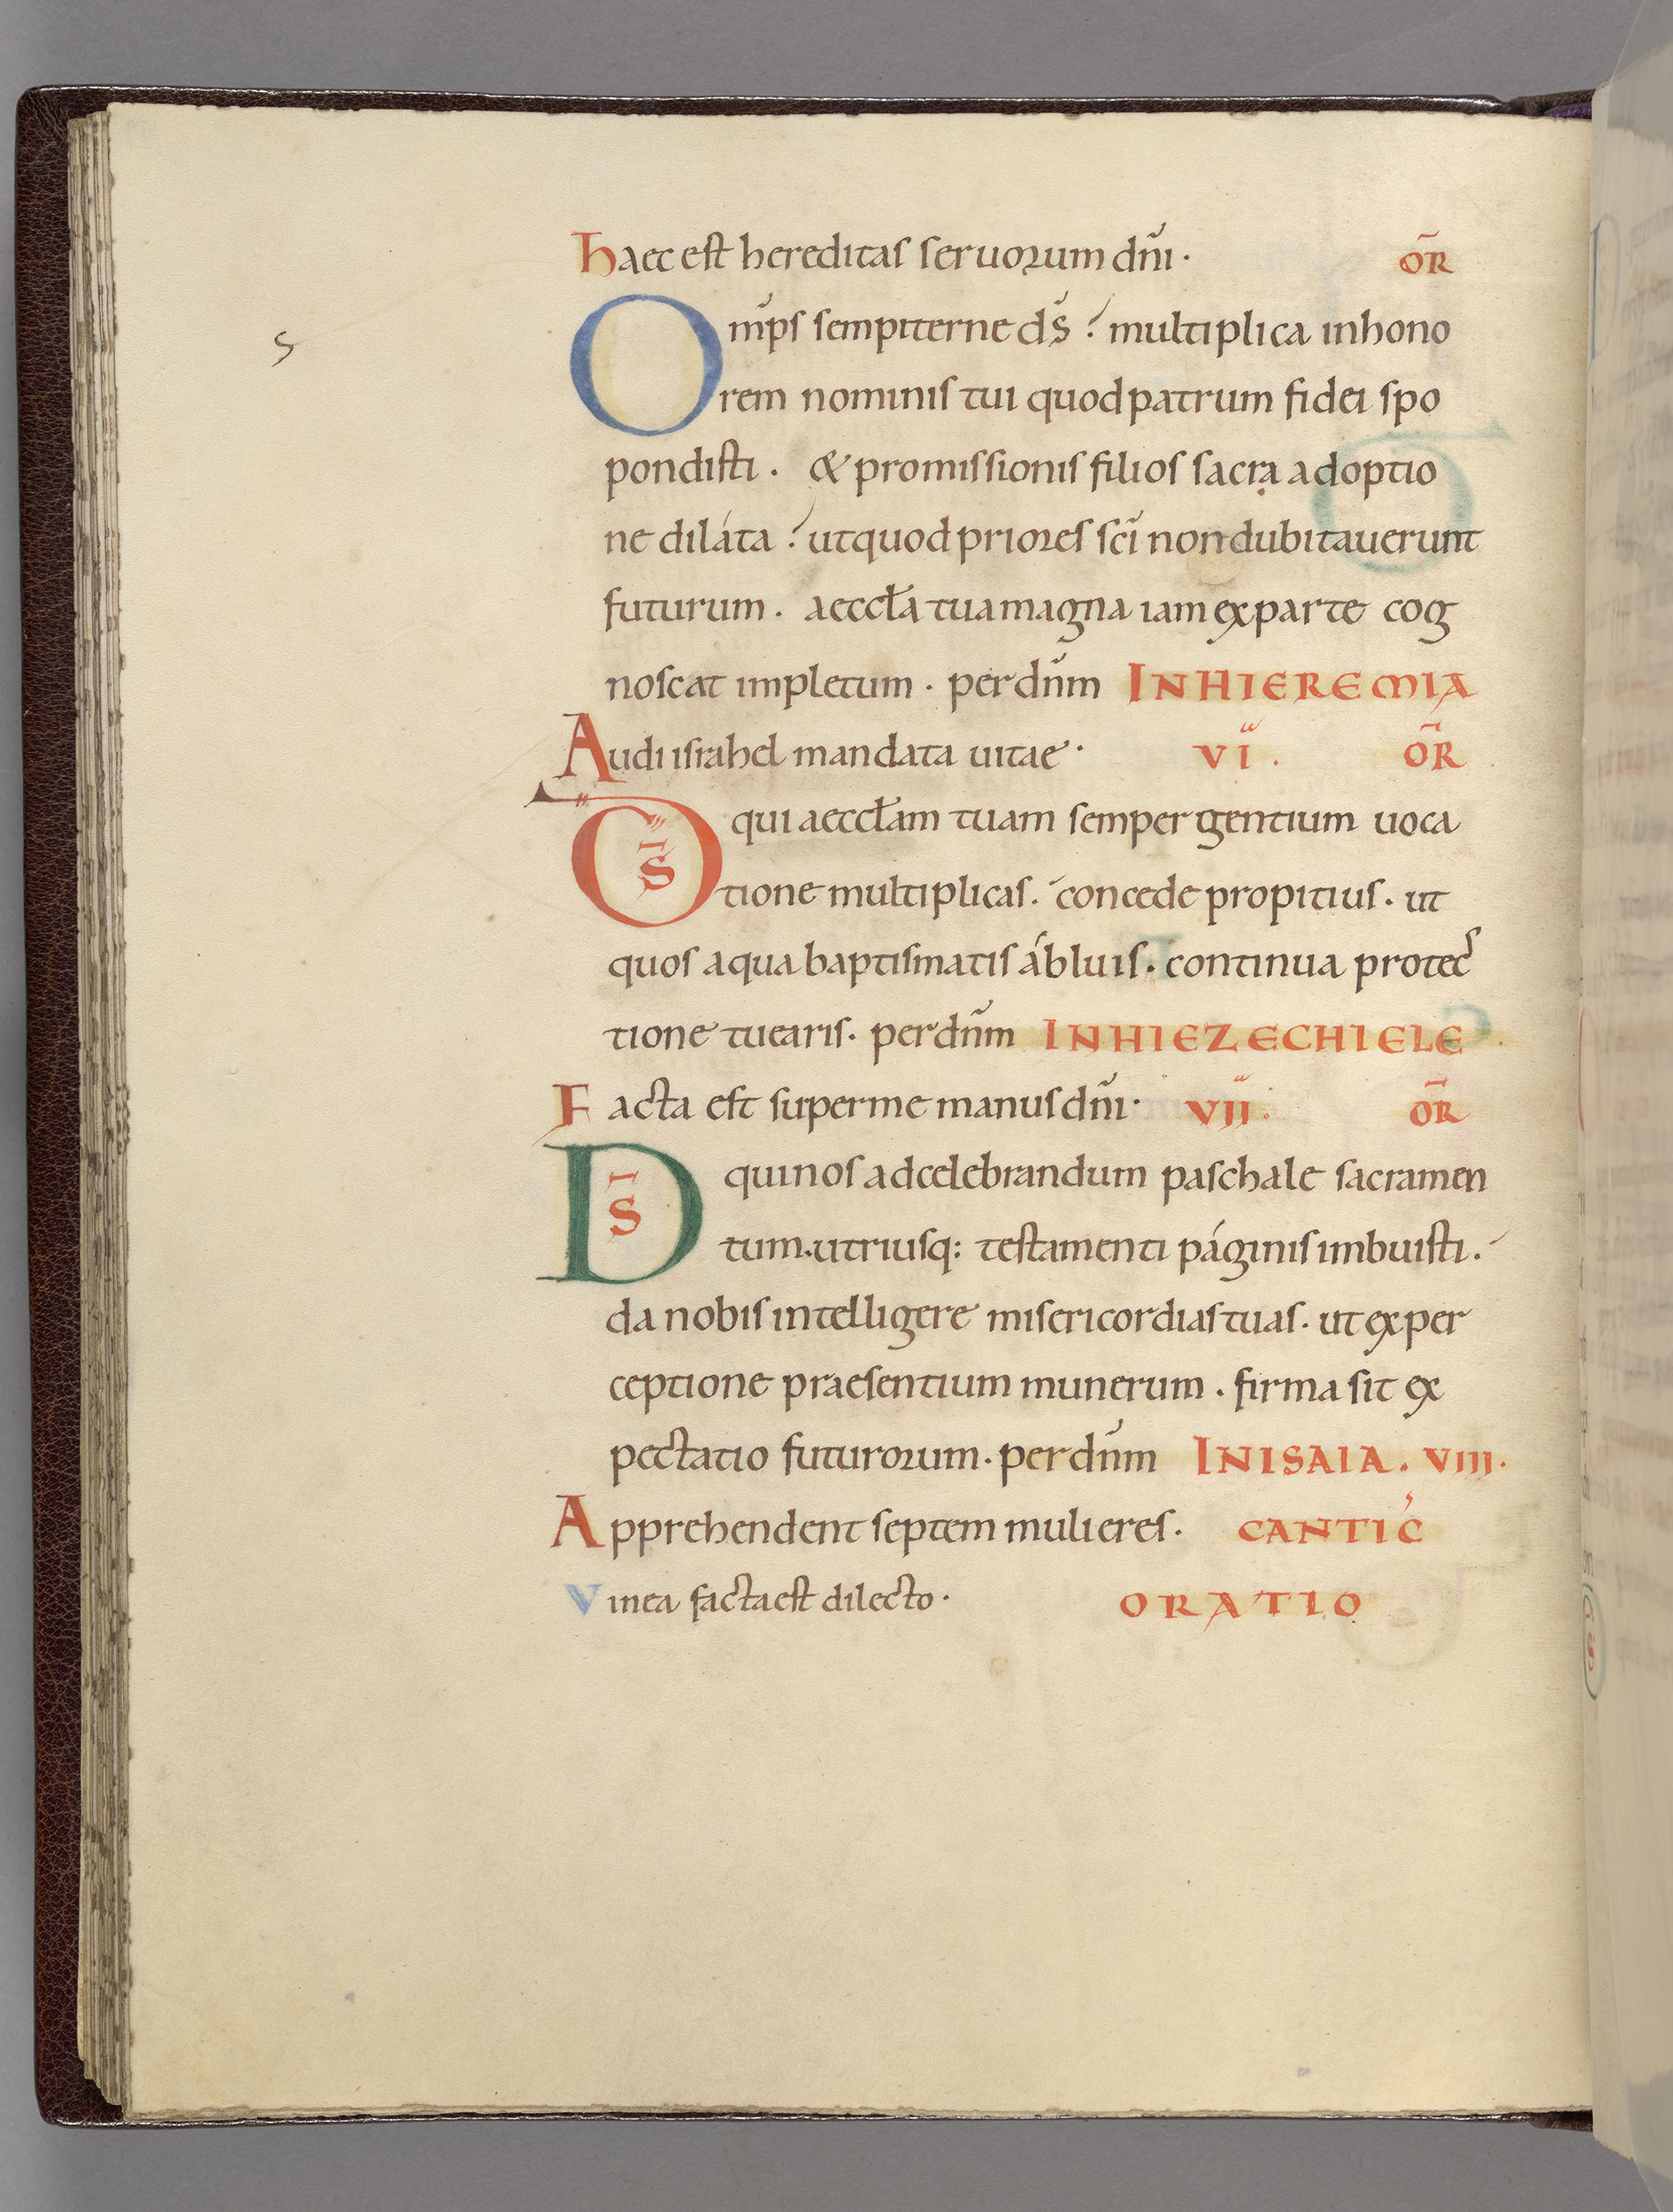 Haec est hereditas seruorum dn̄i· OR̄
Om̄ps sempiterne ds̄ multiplica inhono
rem nominis tui quodpatrum fidei spo
pondisti· & promissionis filios sacra adoptio
ne diláta utquod priores sc̄i nondubitauerunt
futurum· aeccƚa tuamagna iam exparte cog
noscat impletum· perdn̄m INHIEREMIA
Audi israhel mandata uitae· VI· OR̄
DS̄ qui aeccƚam tuam semper gentium uoca
tione multiplicas· concede propitius· ut
quos aqua baptismatis ábluis· continua protec
tione tuearis· perdn̄m INHIEZECHIELE·
Facta est superme manus dn̄i· VII· OR̄
DS̄ quinos adcelebrandum paschale sacramen
tum·utriusq: testamenti páginis imbuisti·
da nobis intelligere misericordias tuas· ut exper
ceptione praesentium munerum· firma sit ex
pectatio futurorum· perdn̄m INISAIA· VIII·
Apprehendent septem mulieres· CANTIC̄
Vinea facta est dilecto· ORATIO